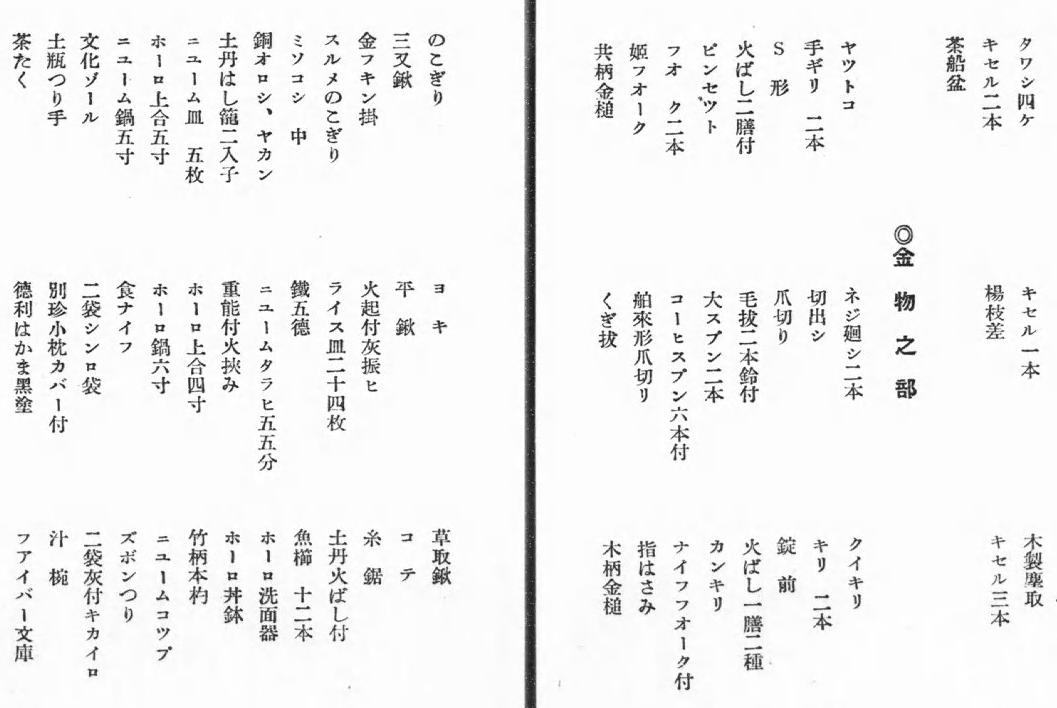 タワシ四ケ　キセル一本　木製塵取
キセル二本　楊枝差　キセル三本
茶船盆
◎金物之部
ヤツトコ　ネジ廻シ二本　クイキリ
手ギリ　二本　切出シ　キリ　二本
S　形　爪切り　錠　前
火ばし二膳付　毛拔二本鈴付　火ばし一膳二種
ピンセツト　大スプン二本　カンキリ
フオ　ク二本　コーヒスプン六本付　ナイフフオーク付
姫フオーク　舶來形爪切リ　指はさみ
共柄金槌　くぎ拔　木柄金槌
のこぎり　ヨキ　草取鍬
三又鍬　平　鍬　コテ
金フキン掛　火起付灰振ヒ　糸　鋸
スルメのこぎり　ライス皿二十四枚　土丹火ばし付
ミソコシ　中　鐵五德　魚櫛　十二本
銅オロシ、ヤカン　ニユームタラヒ五五分　ホーロ洗面器
土丹はし籠二入子　重能付火挾み　ホーロ丼鉢
ニユーム皿　五枚　ホーロ上合四寸　竹柄本杓
ホーロ上合五寸　ホーロ鍋六寸　ニユームコツプ
ニユーム鍋五寸　食ナイフ　ズボンつり
文化ゾール　二袋シンロ袋　二袋灰付キカイロ
土瓶つり手　別珍小枕カバー付　汁　椀
茶たく　德利はかま黑塗　フアイバー文庫